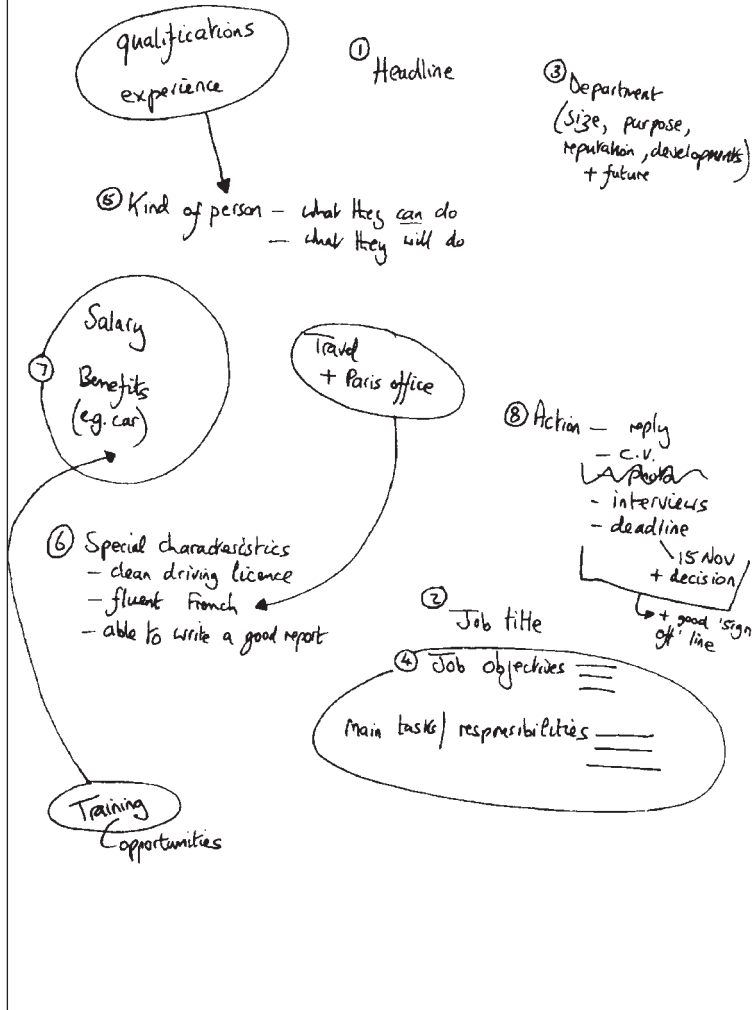 qualifications
experience
① Headline
③ Department
(size, purpose,
reputation, developments)
+ future
⑤ Kind of person – what they can do
– what they will do
⑦
Salary
Benefits
(e.g. car)
Travel
+ Paris office
⑧ Action – reply
– C.V.
– interviews
– deadline
15 Nov
+ decision
+ good 'sign
off' line
⑥ Special characteristics
– clean driving licence
– fluent French
– able to write a good report
②
Job title
④ Job objectives
Main tasks / responsibilities
Training
opportunities